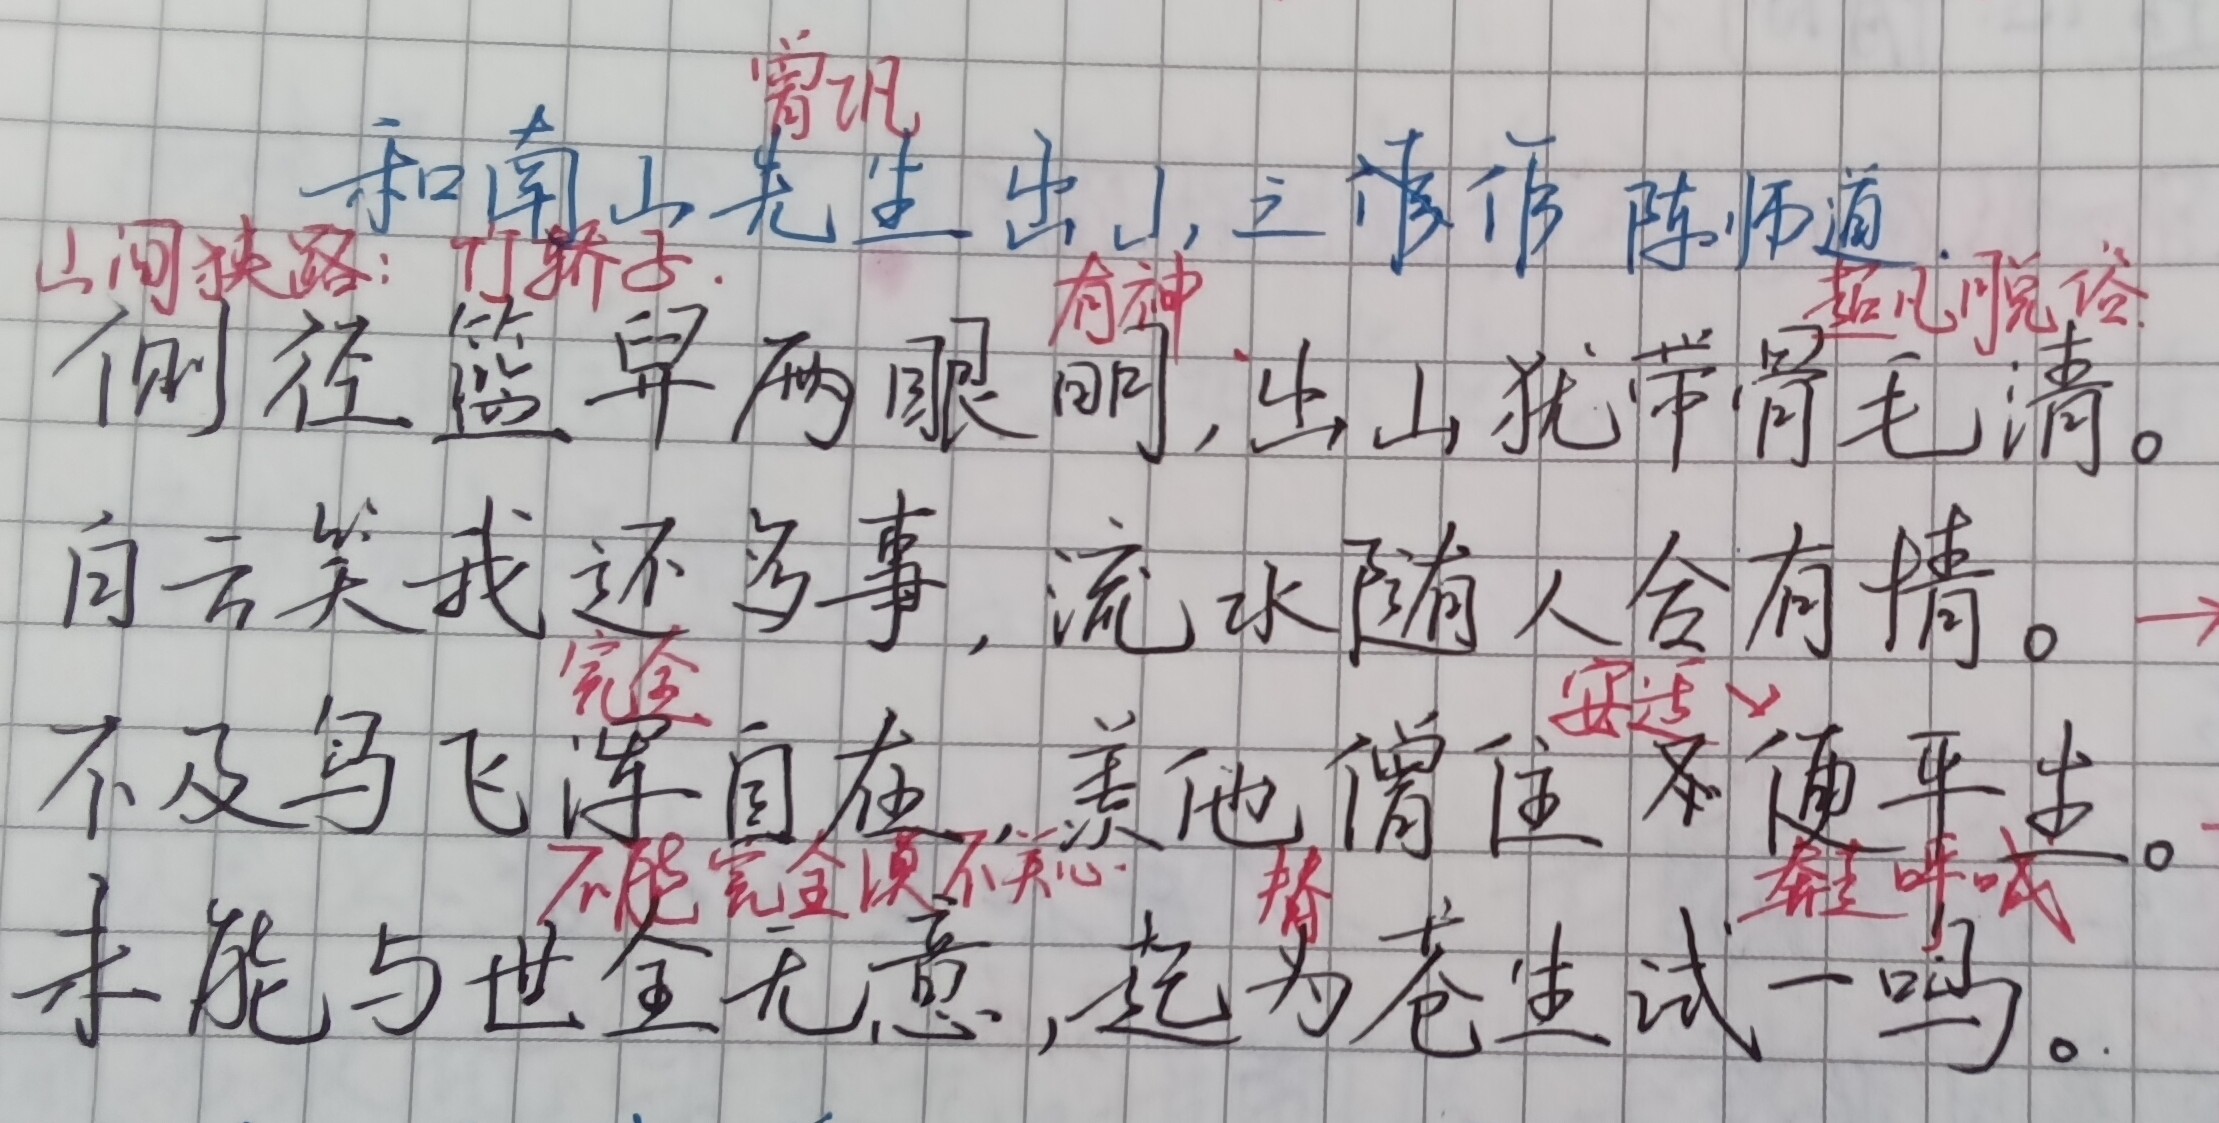 曾巩
和南山先生出山之作 陈师道.
山间狭路: 竹轿子. 有神 超凡脱俗.
侧径篮舁两眼明,出山犹带骨毛清。
白云笑我还多事,流水随人合有情。→
完全 安适↘
不及鸟飞浑自在,羡他僧住便平生。
不能完全漠不关心. 替 奔走呼喊
未能与世全无意,起为苍生试一鸣。